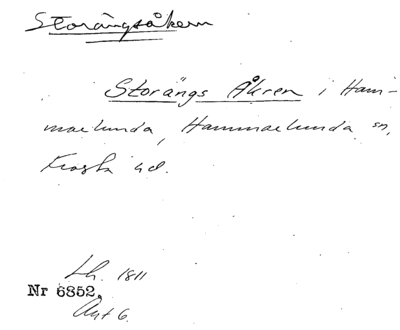 Storängsåkern
Storängs Åkren i Ham-
marlunda, Hammarlunda sn,
Frosta hd.
Lh. 1811
Nr 6852,
Akt 6.